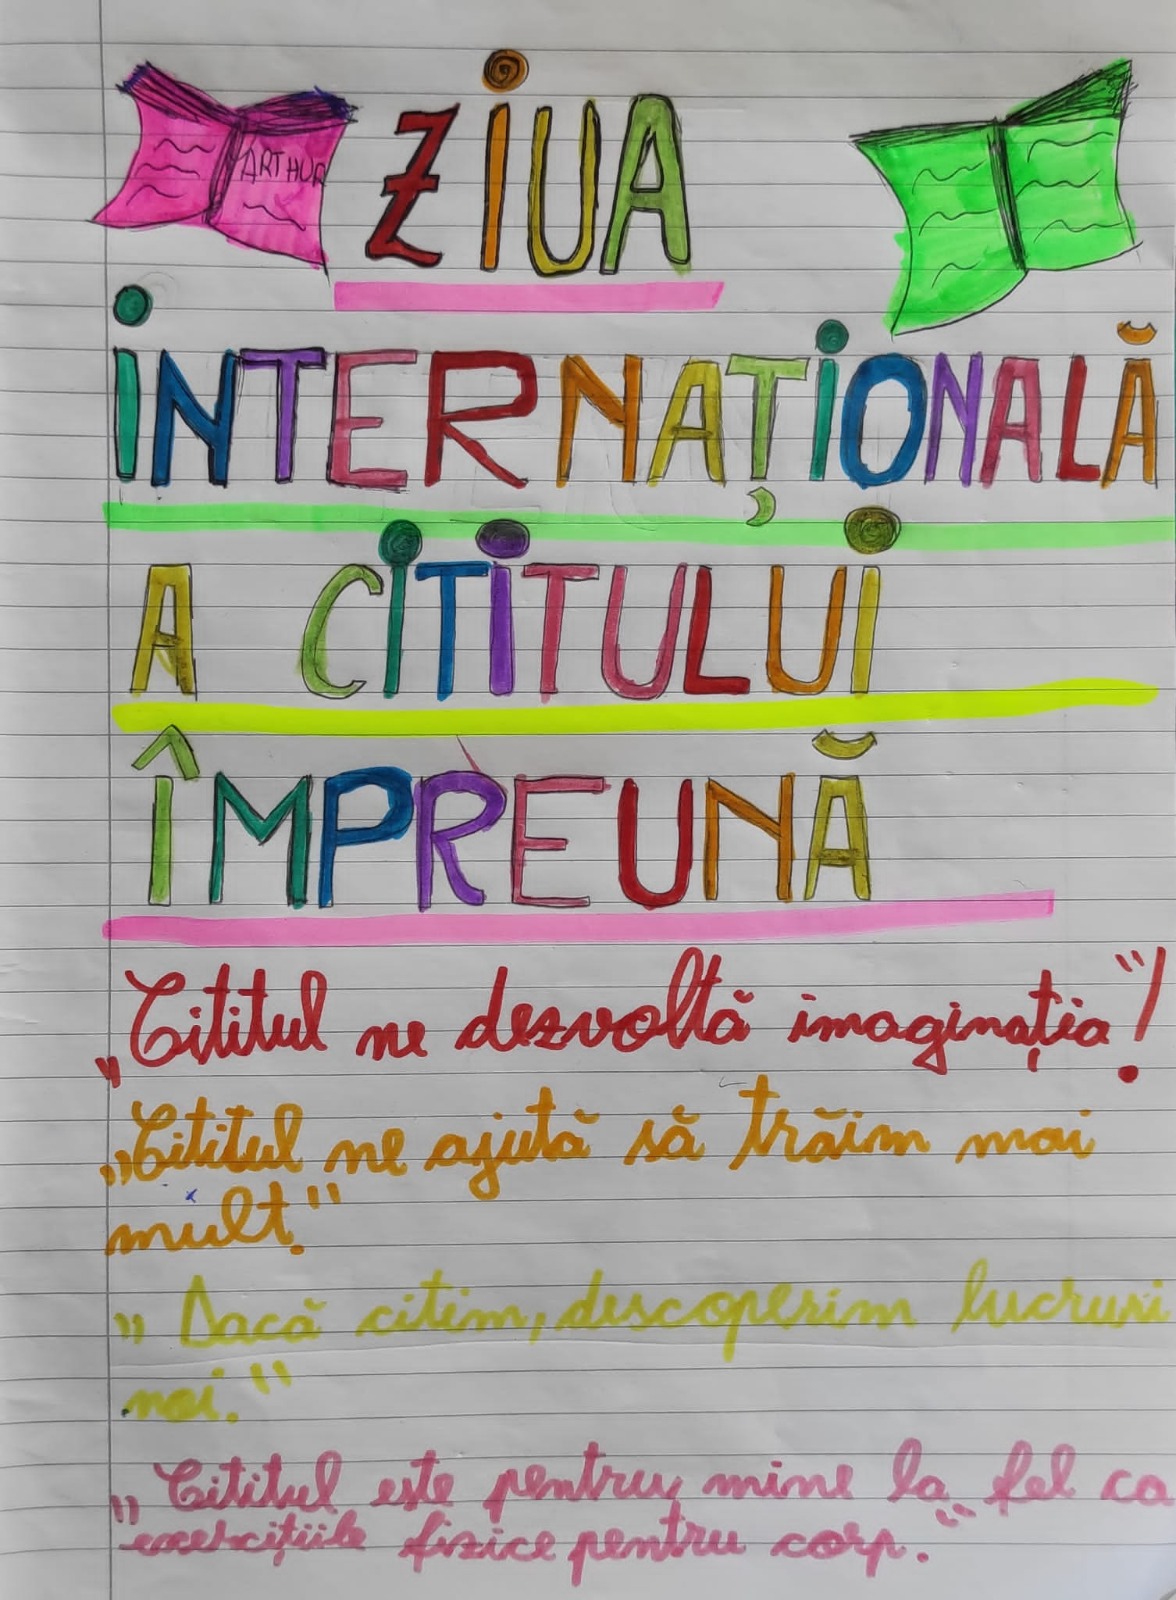 ARTHUR
ZIUA
INTERNAȚIONALĂ
A CITITULUI
ÎMPREUNĂ
„Cititul ne dezvoltă imaginația"!
„Cititul ne ajută să trăim mai
mult."
„Dacă citim, descoperim lucruri
noi."
„Cititul este pentru mine la fel ca
exercițiile fizice pentru corp."